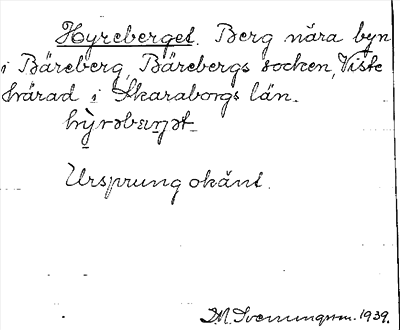 Hyreberget. Berg nära byn
i Bäreberg, Bärebergs socken, Viste
härad i Skaraborgs län.
hỳrəbæri̯ət
Ursprung okänt.
D.M. Svenningson. 1939.